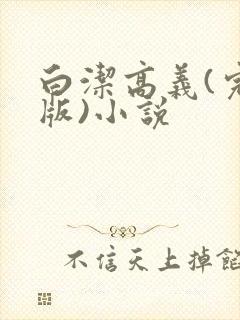 白潔高義(完
版)小說
不信天上掉餡